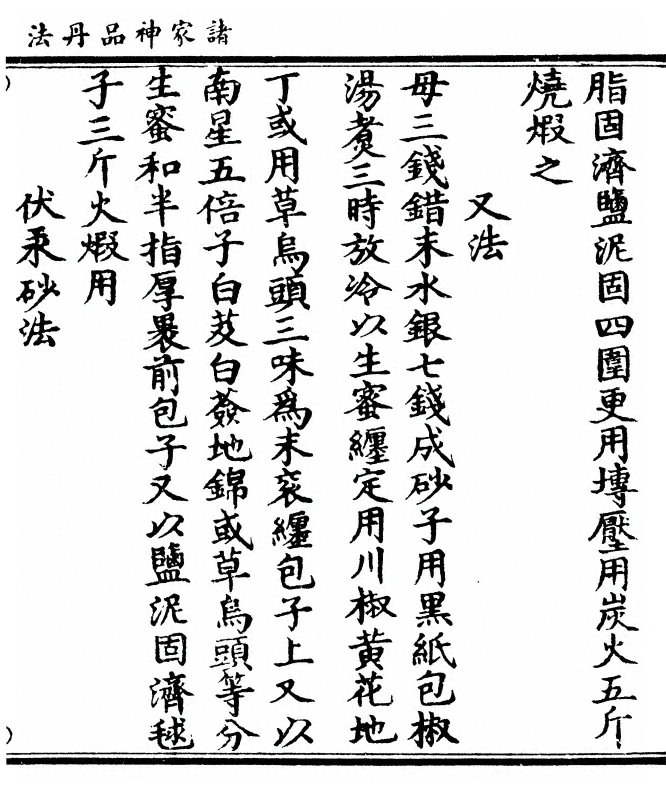 諸家神品丹法
脂固濟鹽泥固四圍更用塼壓用炭火五斤
燒煆之
又法
母三錢錯末水銀七錢成砂子用黑紙包椒
湯煑三時放冷以生蜜纏定用川椒黄花地
丁或用草烏頭三味爲末衮纏包子上又以
南星五倍子白芨白蘞地錦或草烏頭等分
生蜜和半指厚裹前包子又以鹽泥固濟毬
子三斤火煆用
伏汞砂法